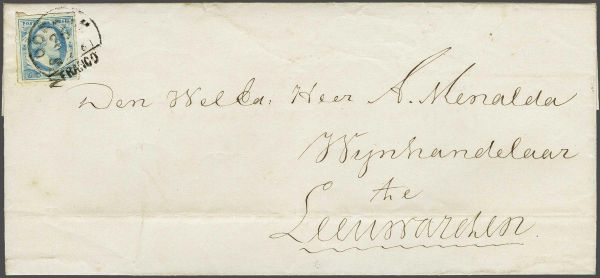 FRANCO
Den WelEd. Heer A. Menalda
Wynhandelaar
te
Leeuwarden.